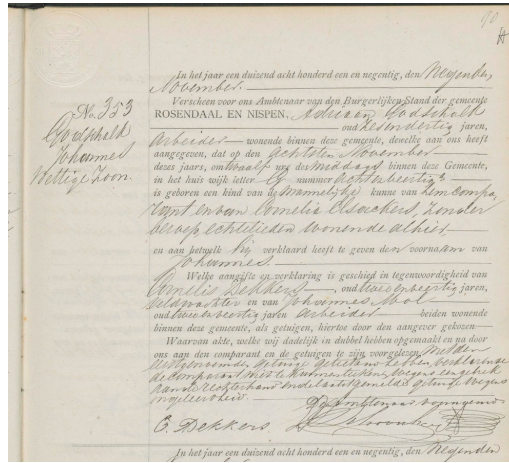 90
No. 353
Godschalk
Johannes
Wettige Zoon.
In het jaar een duizend acht honderd een en negentig, den Negenden
November.
Verscheen voor ons Ambtenaar van den Burgerlijken Stand der gemeente
ROSENDAAL EN NISPEN, Adriaan Godschalk
oud zesendertig jaren,
Arbeider wonende binnen deze gemeente, dewelke aan ons heeft
aangegeven, dat op den achtsten November
dezes jaars, om twaalf ure des middags binnen deze Gemeente,
in het huis wijk letter G nummer
is geboren een kind van de Mannelijke kunne van hem compa-
rant en van Cornelia Elsackers, zonder
beroep echtelieden wonende alhier,
en aan hetwelk hij verklaard heeft te geven den voornaam van
Johannes
Welke aangifte en verklaring is geschied in tegenwoordigheid van
Cornelis Dekkers oud tweeenveertig jaren,
veldwachter en van Johannes Mol
oud tweeenveertig jaren arbeider beiden wonende
binnen deze gemeente, als getuigen, hiertoe door den aangever gekozen
Waarvan akte, welke wij dadelijk in dubbel hebben opgemaakt en na door
ons aan den comparant en de getuigen te zijn voorgelezen, met den
eerstgenoemden getuige geteekend hebben, verklarende
de comparant niet te kunnen teekenen wegens een gebrek
aan de rechterhand en de laatstgemelde getuige wegens
ongeleerdheid.
De Ambtenaar voornoemd
C. Dekkers
In het jaar een duizend acht honderd een en negentig, den Negenden